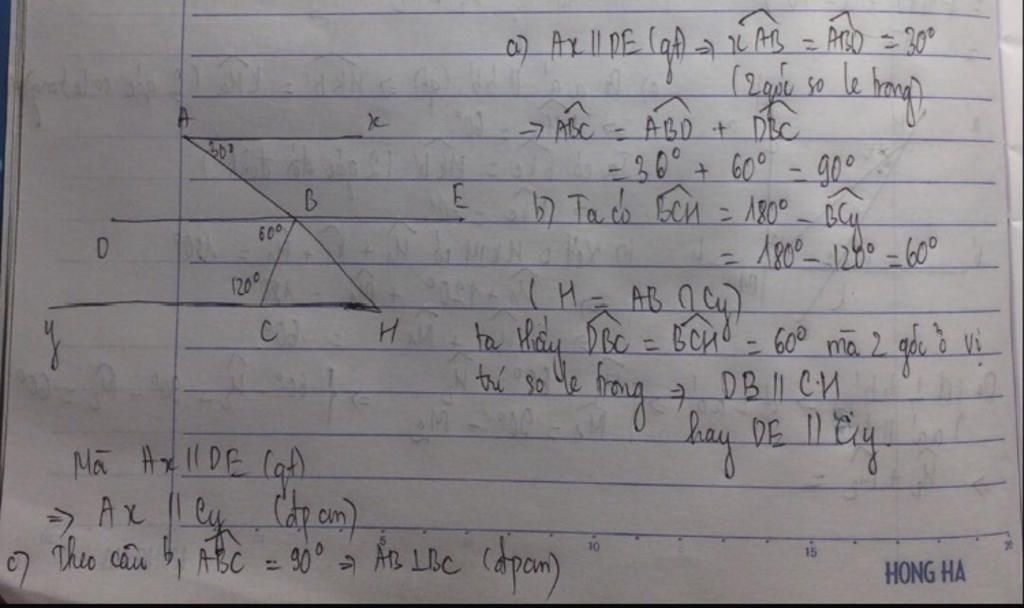 a) Ax // DE (gt) ⇒ xÂB = ABD = 30°
(2 góc so le trong)
⇒ ABC = ABD + DBC
= 30° + 60° = 90°
b) Ta có BCH = 180° - BCy
= 180° - 120° = 60°
( H = AB ∩ Cy)
ta thấy DBC = BCH = 60° mà 2 góc ở vị
trí so le trong ⇒ DB // CH
hay DE // Cy.
A
x
30°
B
E
D
60°
120°
y
C
H
Mà Ax // DE (gt)
⇒ Ax // Cy (đpcm)
c) Theo câu b, ABC = 90° ⇒ AB ⊥ BC (đpcm)
5
10
15
20
HONG HA